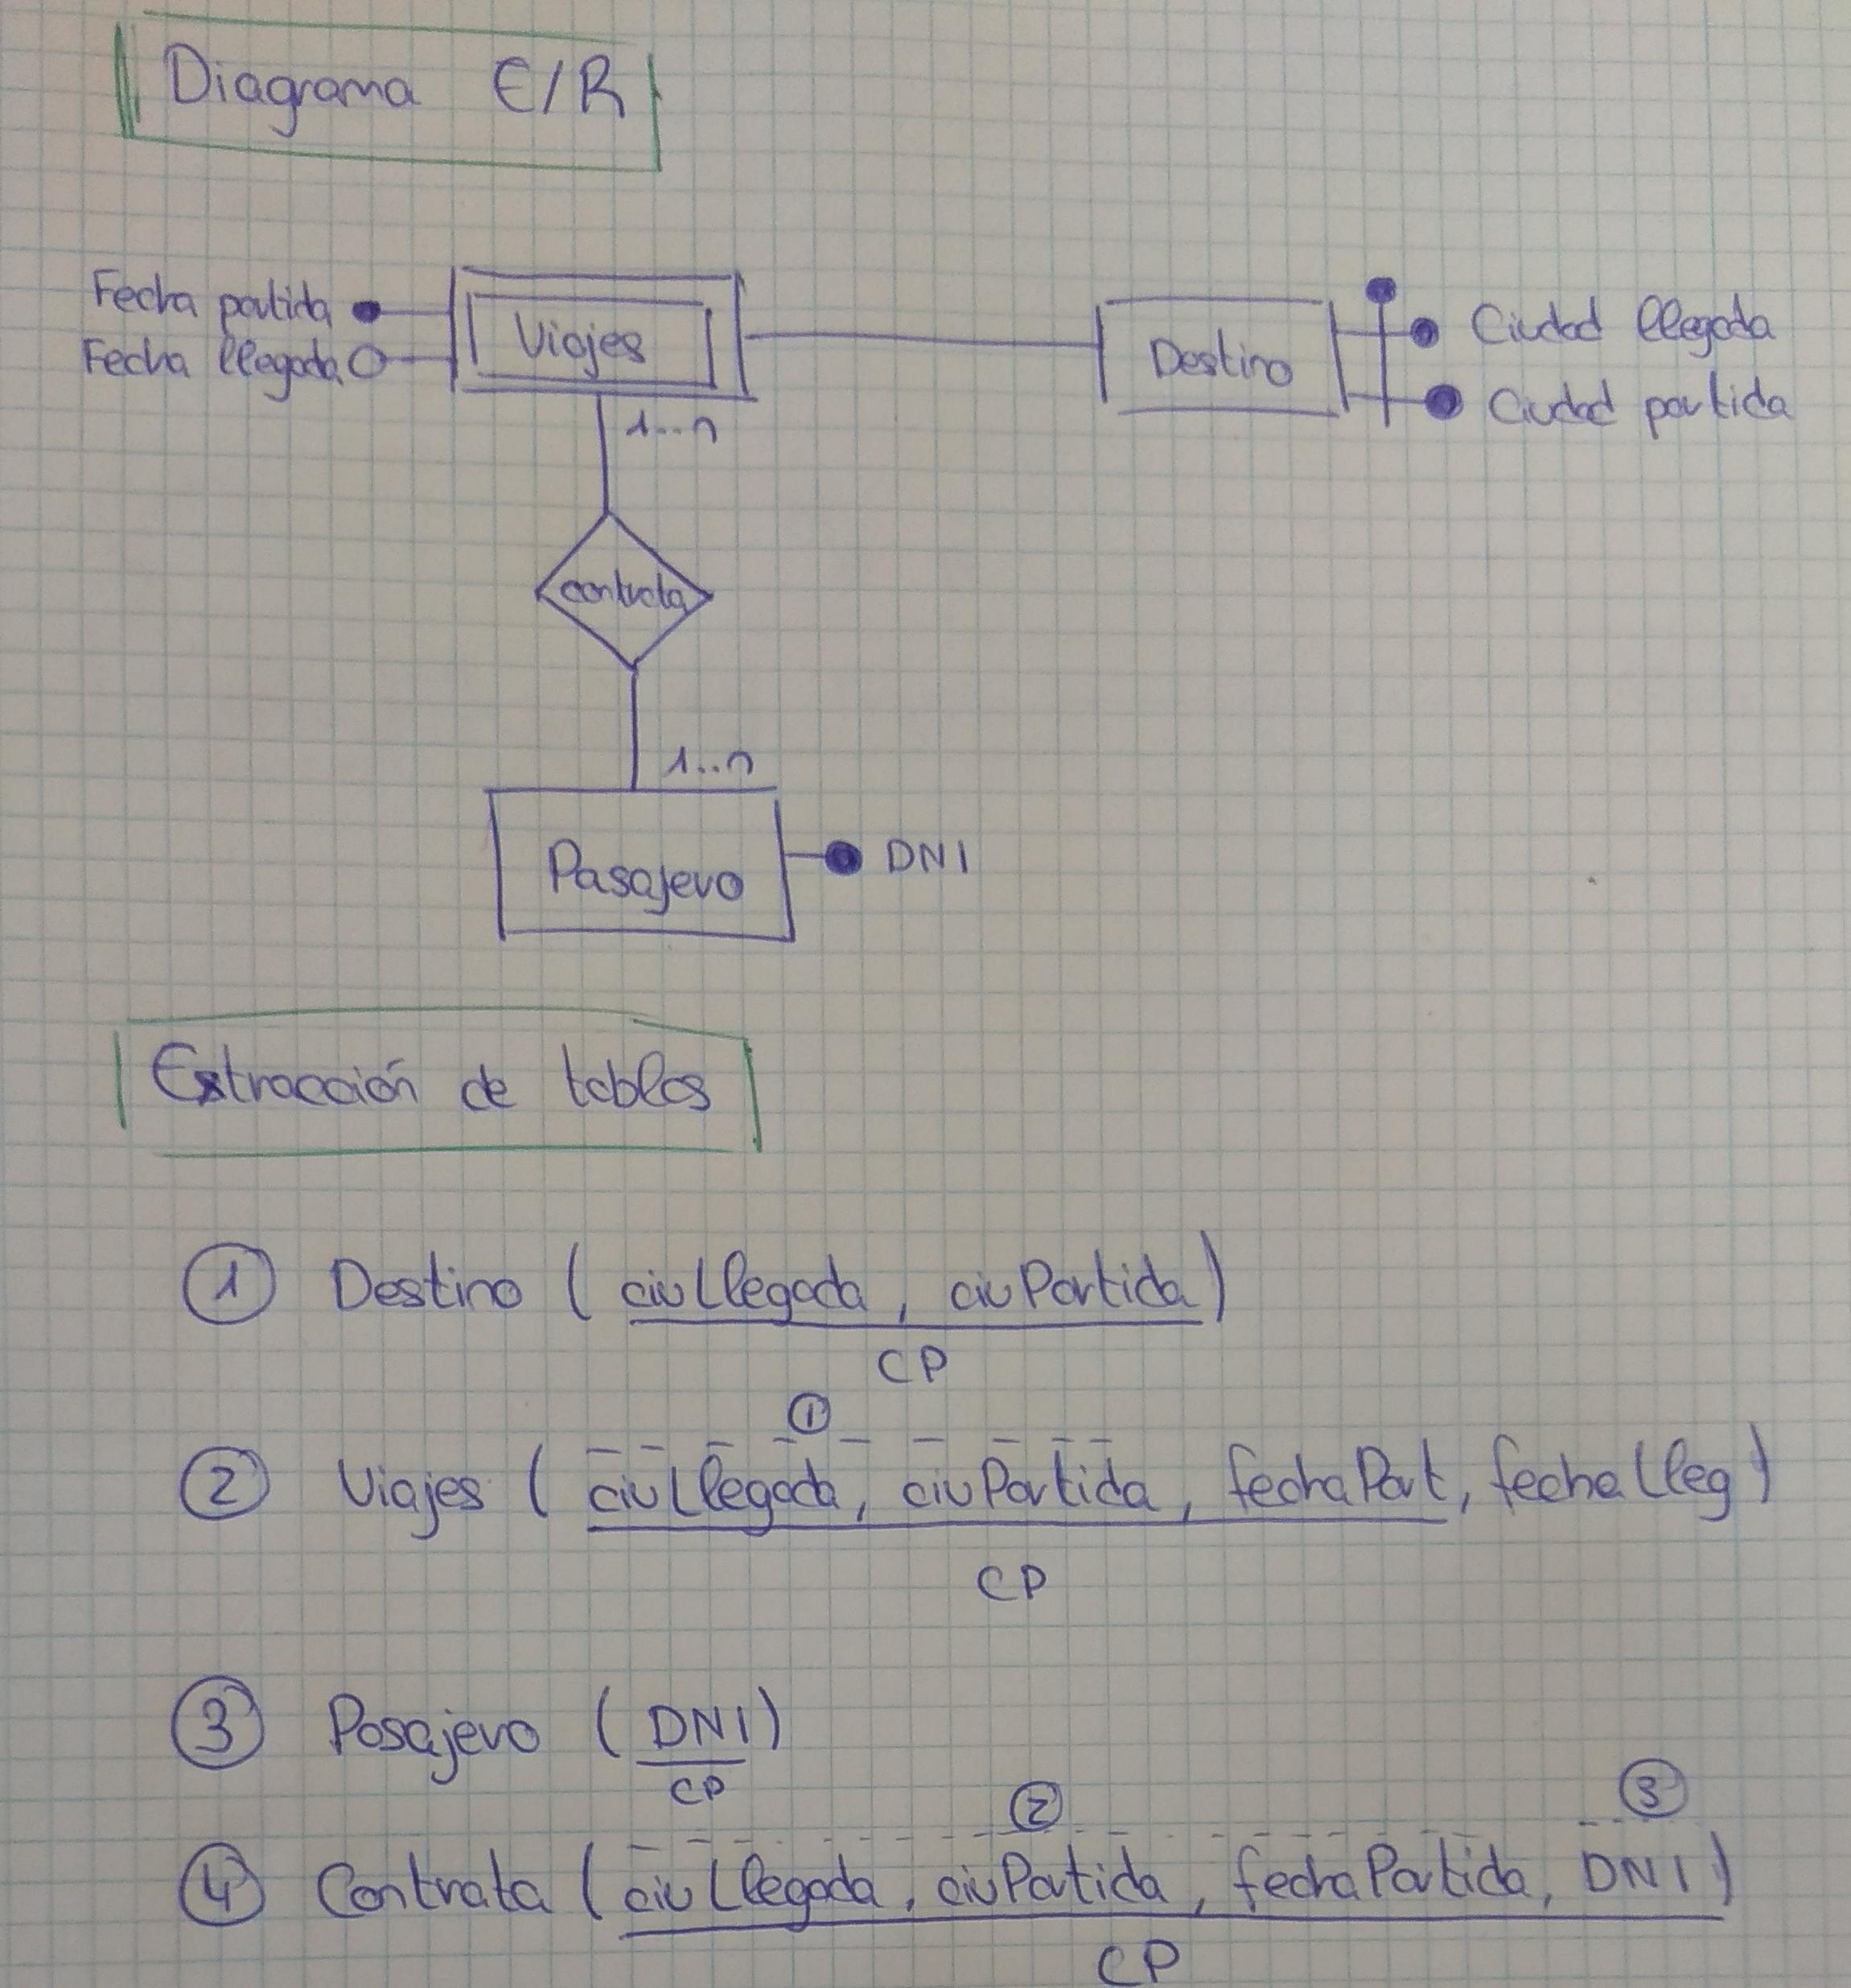 Diagrama E/R
Fecha partida
Fecha llegada
Viajes
Destino
Ciudad llegada
Ciudad partida
1...n
contrata
1..n
Pasajero
DNI
Extracción de tablas
1 Destino ( ciuLlegada, ciuPartida)
CP
1
2 Viajes ( ciuLlegada, ciuPartida, fechaPart, fechaLleg)
CP
3 Pasajero ( DNI)
CP
2 3
4 Contrata ( ciuLlegada, ciuPartida, fechaPartida, DNI)
CP